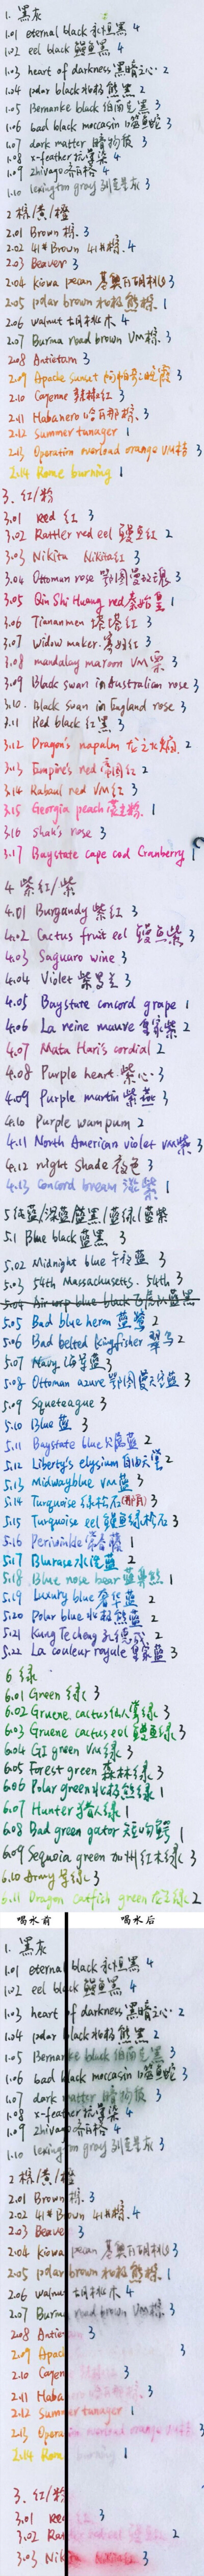 1. 黑灰
1.01 eternal black 永恒黑 4
1.02 eel black 鳗鱼黑 4
1.03 heart of darkness 黑暗之心 2
1.04 polar black 北极熊黑 2
1.05 Bernanke black 伯南克黑 3
1.06 bad black moccasin 噬鱼蛇 3
1.07 dark matter 暗物质 3
1.08 x-feather 抗晕染 4
1.09 zhivago 齐瓦格 4
1.10 lexington gray 列克星灰 3
2 棕/黄/橙
2.01 Brown 棕 3
2.02 41# Brown 41#棕 4
2.03 Beaver 3
2.04 Kiowa pecan 基奥瓦胡桃 3
2.05 polar brown 北极熊棕 1
2.06 walnut 胡桃木 4
2.07 Burma road brown VM棕 3
2.08 Antietam 3
2.09 Apache sunset 阿帕奇晚霞 3
2.10 Cayenne 辣椒红 3
2.11 Habanero 哈瓦那棕 3
2.12 Summer tanager 1
2.13 Operation overload orange VM桔 3
2.14 Rome burning 1
3. 红/粉
3.01 Red 红 3
3.02 Rattler red eel 鳗鱼红 2
3.03 Nikita Nikita红 3
3.04 Ottoman rose 鄂图曼玫瑰 3
3.05 Qin Shi Huang red 秦始皇 1
3.06 Tiananmen 3
3.07 Widow maker 寡妇红 3
3.08 mandalay maroon VM栗 3
3.09 Black swan in Australian rose 3
3.10. Black Swan in England rose 3
3.11 Red black 红黑 3
3.12 Dragon's napalm 龙之火焰 2
3.13 Empire's red 帝国红 2
3.14 Rabaul red VM红 3
3.15 Georgia peach 蜜桃粉 1
3.16 Shah's rose 3
3.17 Baystate cape cod Cranberry 1
4 紫红/紫
4.01 Burgundy 紫红 3
4.02 Cactus fruit eel 鳗鱼紫 3
4.03 Saguaro wine 3
4.04 Violet 紫罗兰 3
4.05 Baystate concord grape 1
4.06 La reine mauve 皇家紫 2
4.07 Mata Hari's cordial 2
4.08 Purple heart 紫心 3
4.09 Purple martin 紫燕 3
4.10 Purple wampum 2
4.11 North American violet VM紫 3
4.12 night Shade 夜色 3
4.13 Concord bream 1
5 纯蓝/深蓝/蓝黑/蓝绿/蓝紫
5.1 Blue black 蓝黑 3
5.02 Midnight blue 午夜蓝 3
5.03 54th Massachusetts. 54th 3
5.04 Air corp blue black 飞虎队蓝黑
5.05 Bad blue heron 蓝鹭 2
5.06 Bad belted kingfisher 翠鸟 2
5.07 Navy 海军蓝 3
5.08 Ottoman azure 鄂图曼天蓝 3
5.09 Squeteague 3
5.10 Blue 蓝 3
5.11 Baystate blue 火焰蓝 2
5.12 Liberty's elysium 自由天堂 2
5.13 Midwayblue VM蓝 3
5.14 Turquoise 绿松石 3
5.15 Turquoise eel 鳗鱼绿松石 3
5.16 Periwinkle 常春藤 1
5.17 Blurase 水洗蓝 2
5.18 Blue nose bear 蓝鼻熊 1
5.19 Luxury blue 奢华蓝 2
5.20 Polar blue 北极熊蓝 2
5.21 Kung Te cheng 孔德成 2
5.22 La couleur royale 皇家蓝 3
6 绿
6.01 Green 绿 3
6.02 Gruene cactus 仙人掌绿 3
6.03 Gruene cactus eel 鳗鱼绿 3
6.04 GI green VM绿 3
6.05 Forest green 森林绿 3
6.06 Polar green 北极熊绿 1
6.07 Hunter 猎人绿 1
6.08 Bad green gator 短吻鳄 1
6.09 Sequoia green 加州红木绿 3
6.10 Army 军绿 3
6.11 Dragon catfish green 2
喝水前 喝水后
1. 黑灰
1.01 eternal black 永恒黑 4
1.02 eel black 鳗鱼黑 4
1.03 heart of darkness 黑暗之心 2
1.04 polar black 北极熊黑 2
1.05 Bernanke black 伯南克黑 3
1.06 bad black moccasin 噬鱼蛇 3
1.07 dark matter 暗物质 3
1.08 x-feather 抗晕染 4
1.09 zhivago 齐瓦格 4
1.10 lexington gray 列克星灰 3
2 棕/黄/橙
2.01 Brown 棕 3
2.02 41# Brown 41#棕 4
2.03 Beaver 3
2.04 Kiowa pecan 基奥瓦胡桃 3
2.05 polar brown 北极熊棕 1
2.06 walnut 胡桃木 4
2.07 Burma road brown VM棕 3
2.08 Antietam 3
2.09 Apac 3
2.10 Cayen 3
2.11 Haba 3
2.12 Summer tanager 1
2.13 Operation overload orange 3
2.14 Rome burning 1
3. 红/粉
3.01 Red 3
3.02 Rattler red eel 2
3.03 Nikita Nikita红 3